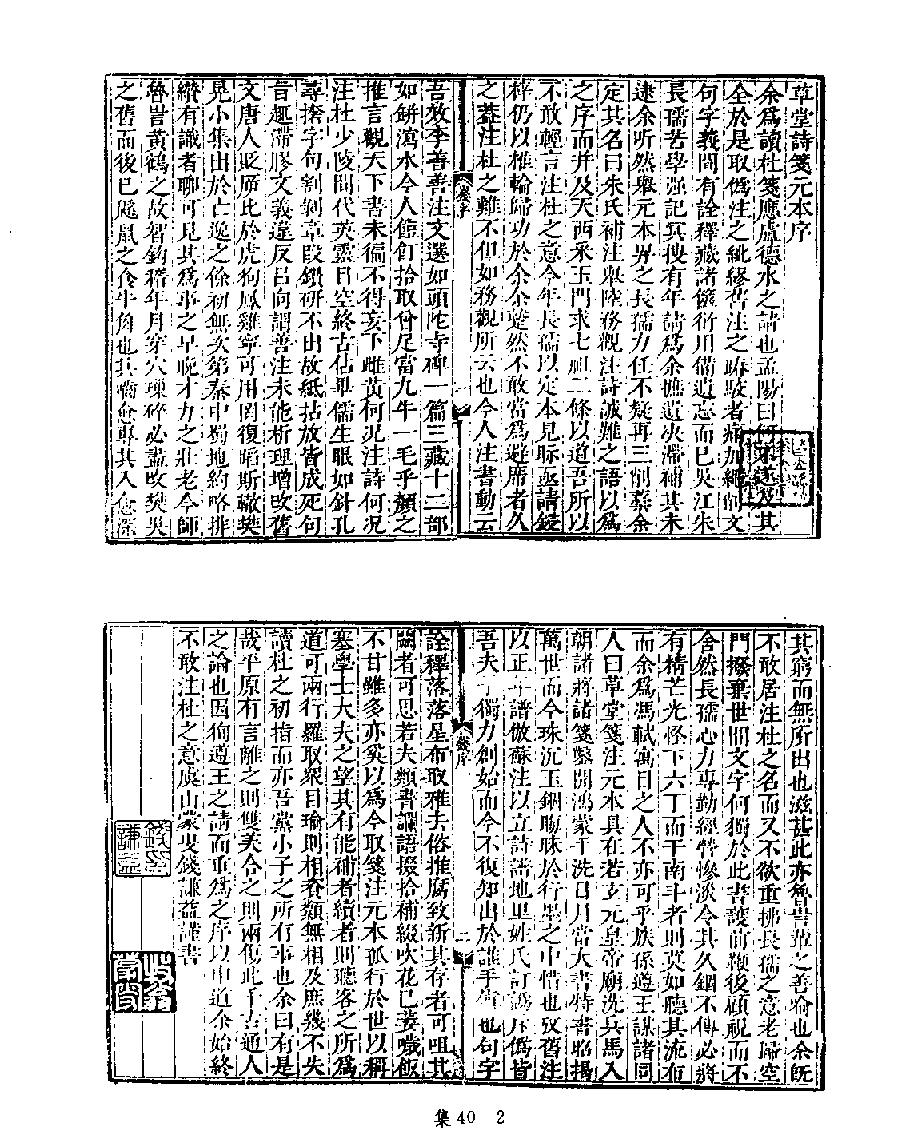 草堂詩箋元本序
余爲讀杜箋應盧德水之請也孟陽曰何不遂及其
全於是取僞注之紕繆舊注之踳駁者痛加繩削文
句字義間有詮釋藏諸篋衍用備遺忘而已吳江朱
長孺苦學强記冥搜有年請爲余摭遺決滯補其未
逮余听然舉元本畀之長孺力任不疑再三削藁余
定其名曰朱氏補注舉陸務觀注詩誠難之語以爲
之序而并及天西采玉門求七祖二條以道吾所以
不敢輕言注杜之意今年長孺以定本見眎亟請鋟
梓仍以椎輪歸功於余余蹵然不敢當爲避席者久
之蓋注杜之難不但如務觀所云也今人注書動云
吾效李善善注文選如頭陀寺碑一篇三藏十二部
如缾瀉水今人餖飣拾取曾足當九牛一毛乎顏之
推言觀天下書未徧不得妄下雌黃何況注詩何況
注杜少陵間代英靈目空終古佔畢儒生眼如針孔
尋撦字句割剝章段鑽研不出故紙拈放皆成死句
旨趣滯膠文義違反吕向謂善注未能析理增改舊
文唐人貶斥比於虎狗鳳雞寧可用罔復蹈斯轍樊
晃小集出於亡逸之餘初無次第秦中蜀地約略排
纘有識者聊可見其爲事之早晚才力之壯老今師
魯訔黃鶴之故智鈎稽年月穿穴瑣碎必盡改樊吳
之舊而後已鼷鼠之食牛角也其嚙愈專其入愈深
其窮而無所出也滋甚此亦魯訔輩之善喻也余旣
不敢居注杜之名而又不欲重拂長孺之意老歸空
門撥棄世間文字何獨於此書護前鞭後顧視而不
舍然長孺心力專勤經營慘淡令其久錮不傳必將
有精芒光怪下六丁而干南斗者則莫如聽其流布
而余爲馮軾寓目之人不亦可乎族孫遵王謀諸同
人曰草堂箋注元本具在若玄元皇帝廟洗兵馬入
朝諸將諸箋鑿開鴻蒙手洗日月當大書特書昭揭
萬世而今珠沉玉錮晦昧於行墨之中惜也攷舊注
以正年譜倣蘇注以立詩譜地里姓氏訂譌斥僞皆
吾夫子獨力創始而今不復知出於誰手僞也句字
詮釋落落星布取雅去俗推腐致新其存者可咀其
闕者可思若夫類書讕語掇拾補綴吹花已萎噦飯
不甘雖多亦奚以爲今取箋注元本孤行於世以稱
塞學士大夫之望其有能補者續者則聽客之所爲
道可兩行羅取衆目瑜則相竝類無相及庶幾不失
讀杜之初指而亦吾黨小子之所有事也余曰有是
哉平原有言離之則雙美合之則兩傷此千古通人
之論也因徇遵王之請而重爲之序以申道余始終
不敢注杜之意虞山蒙叟錢謙益謹書
錢謙益
牧翁
集 40 2